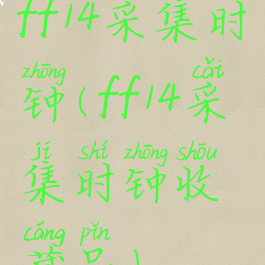 ff14采集时
zhōng cǎi
钟(ff14采
jí shí zhōng shōu
集时钟收
cáng pǐn
藏品)